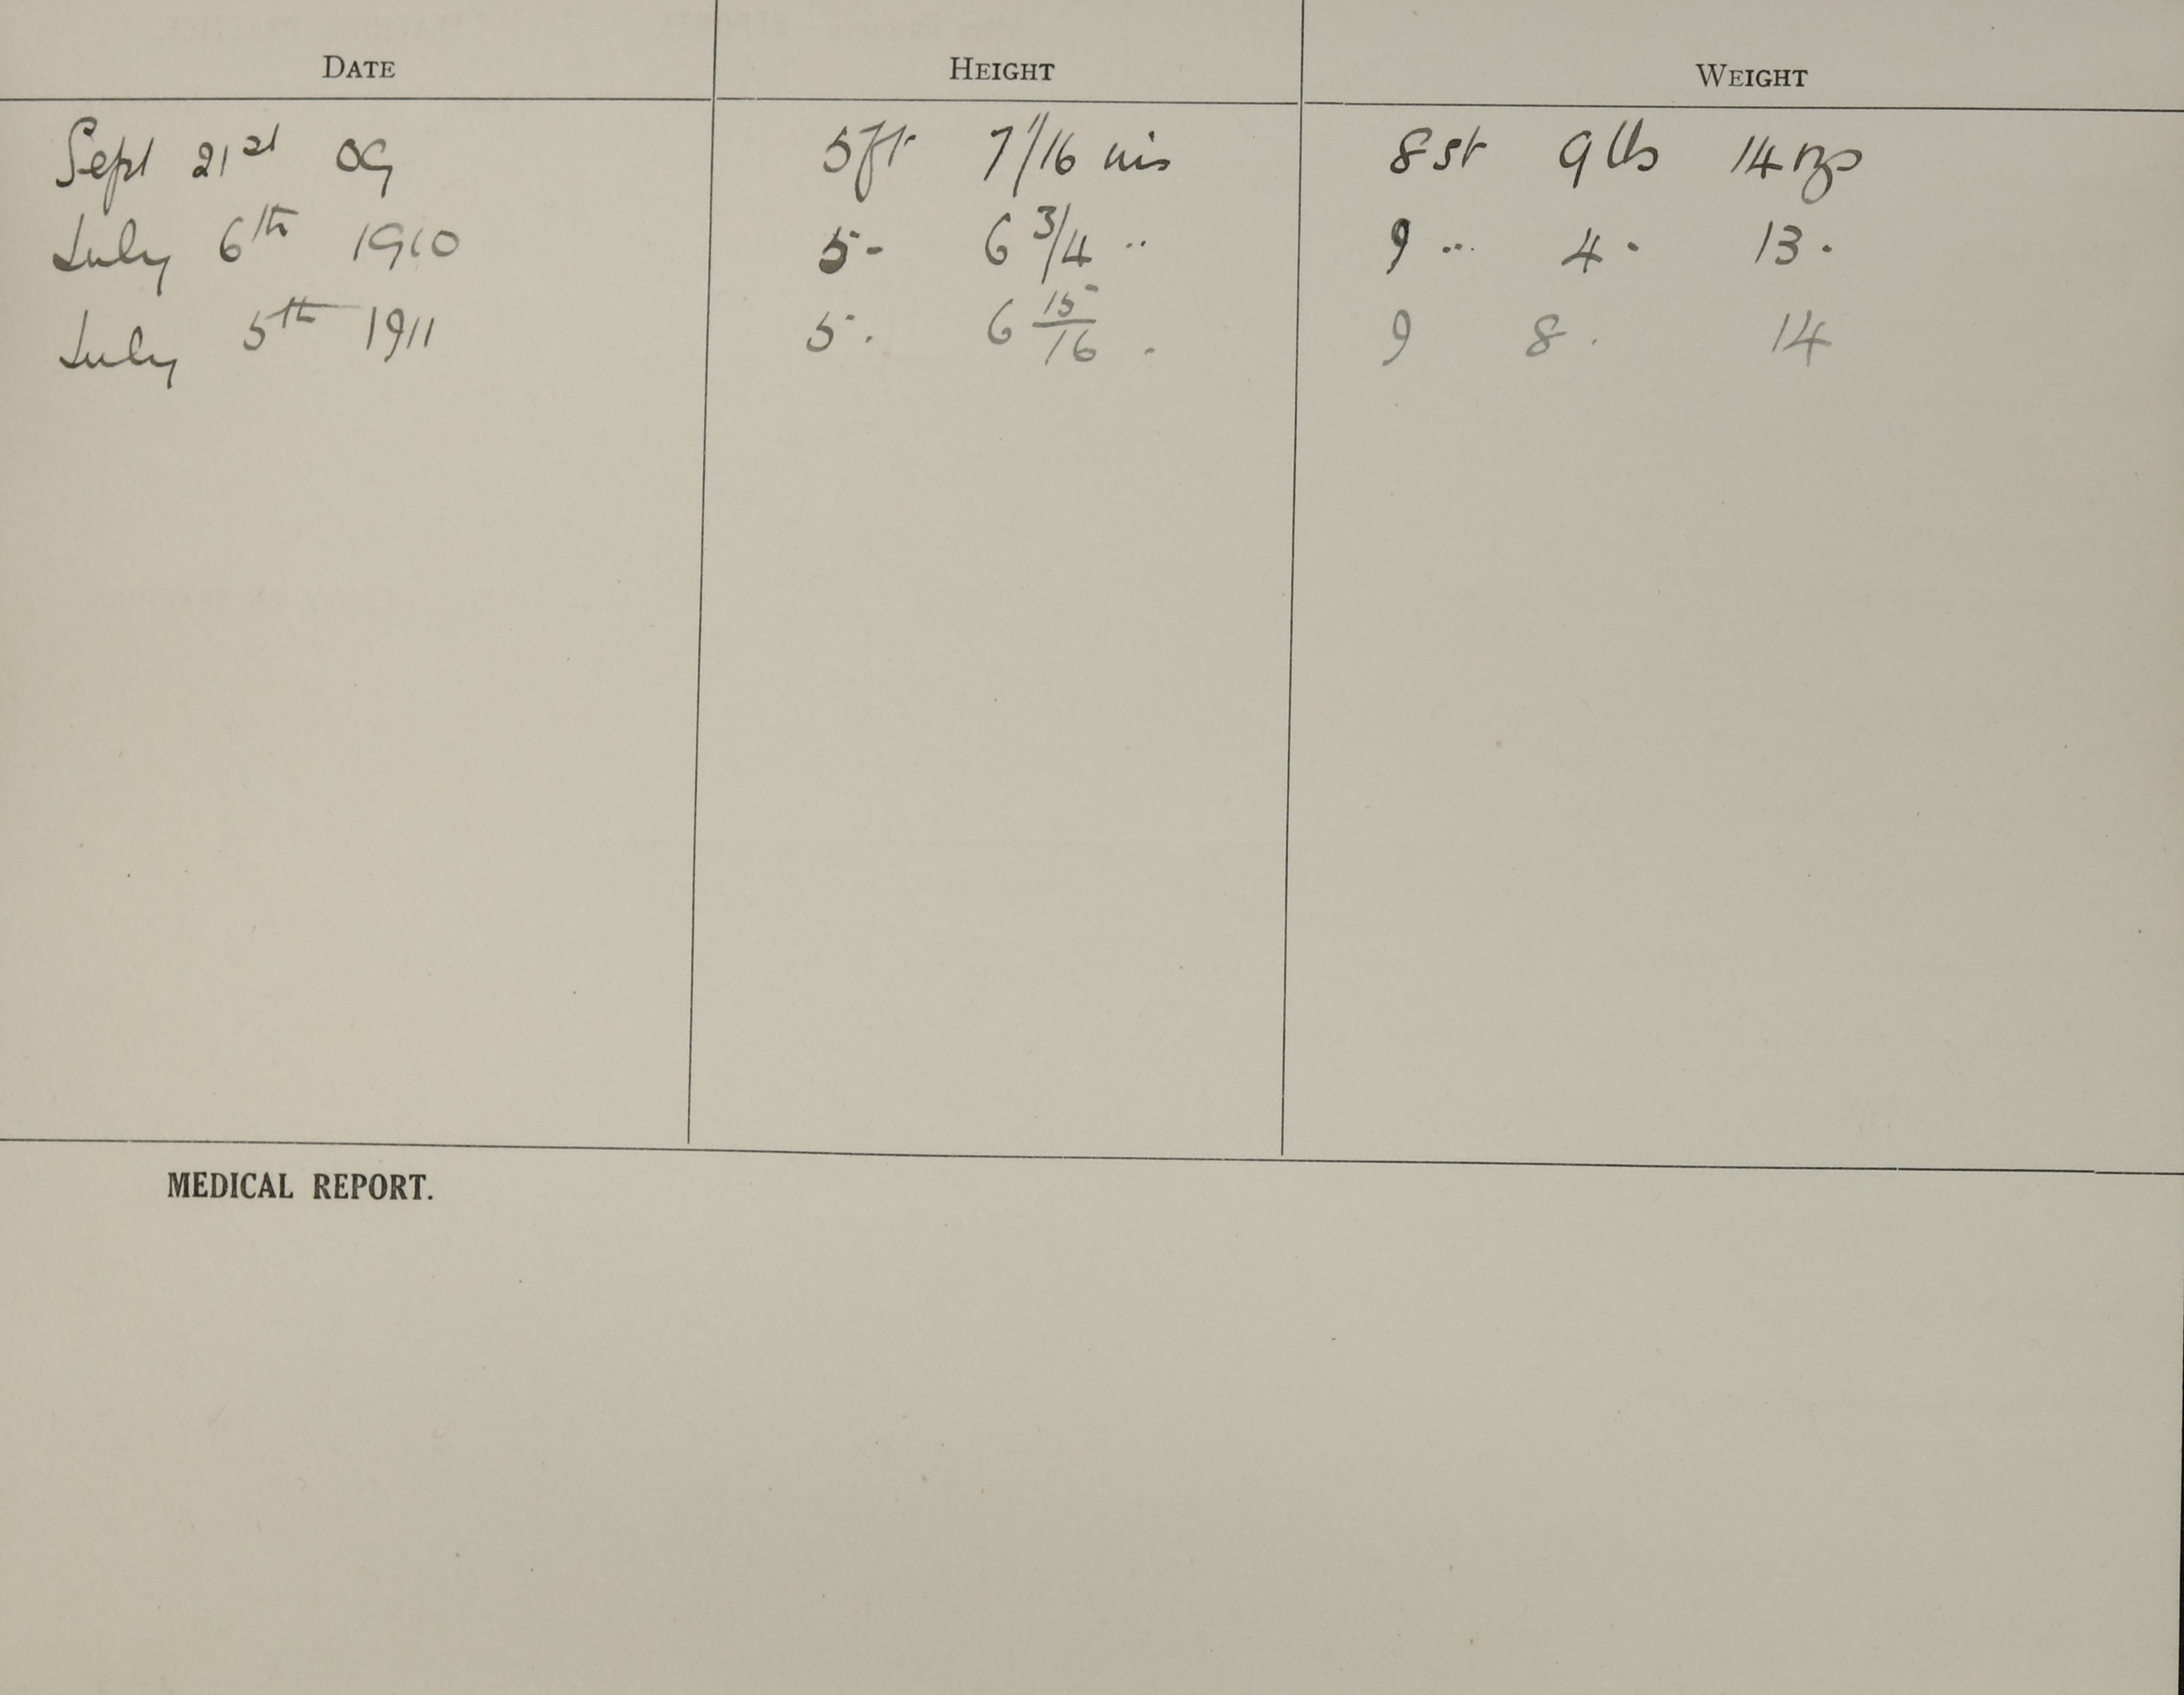 DATE HEIGHT WEIGHT
Sept 21st 09 5ft 7"/16 ins 8st 9lbs 14ozs
July 6th 1910 5 - 6 3/4 .. 9 ... 4 . 13 .
July 5th 1911 5 . 6 15/16 . 9 8 . 14
MEDICAL REPORT.